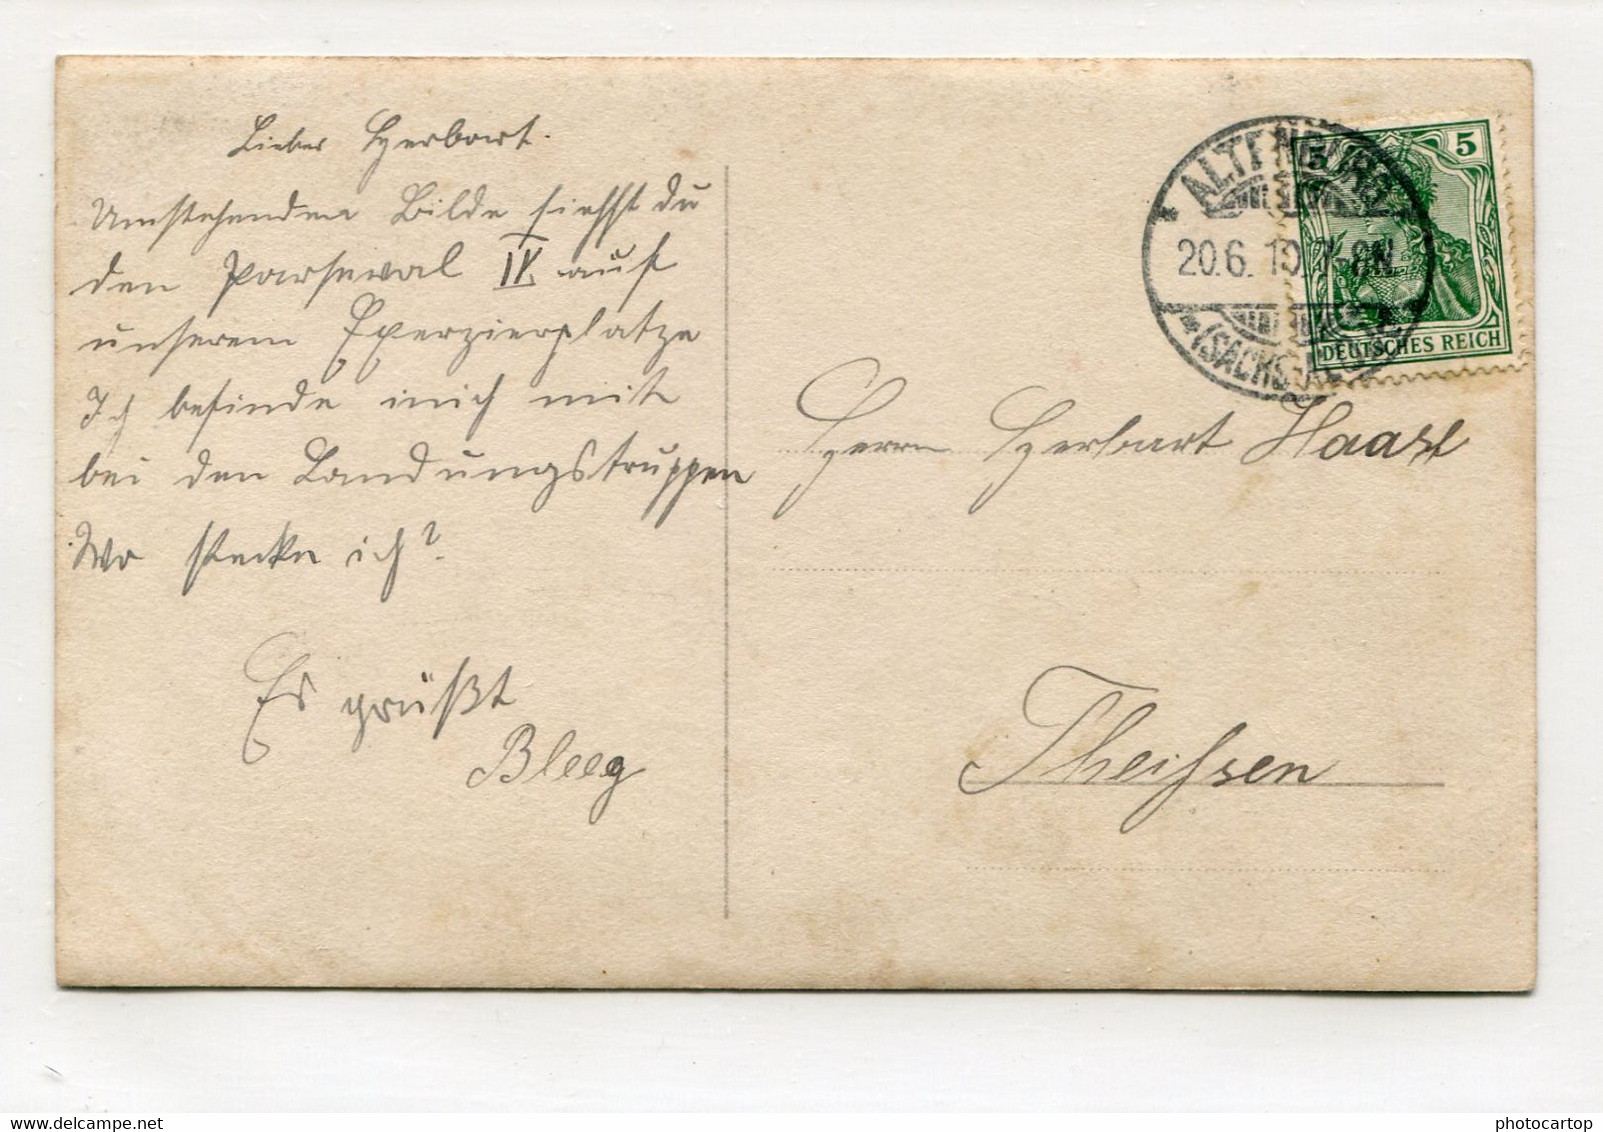 Lieber Herbart.
Umstehenden Bilde siehst du
den Parseval IV. auf
unserem Exerzierplatze
Ich befinde mich mit
bei den Landungstruppen
Wo stecke ich?
Es grüßt
Bleeg
ALTENBURG
20.6.10. 7-8N
(SACHS.-A.)
5
5
DEUTSCHES REICH
Herrn Herbart Haase
Theißsen
photocartop